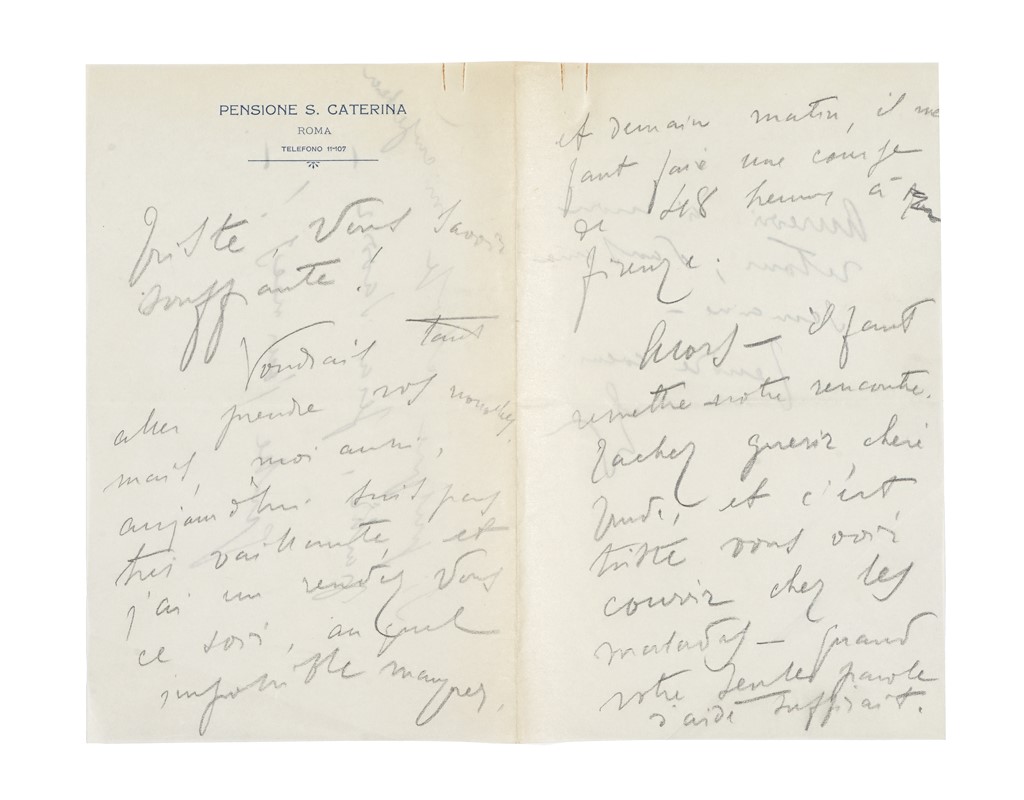 PENSIONE S. CATERINA
ROMA
TELEFONO 11-107
Triste, Vous savoir
souffrante!
Voudrais tant
aller prendre vos nouvelles,
mais, moi aussi,
aujourd'hui suis pas
très vaillante, et
j'ai un rendez Vous
ce soir, au quel
impossible manquer,
et demain matin, il me
faut faire une course
de 48 heures à
firenze.
Alors — il faut
remettre notre rencontre.
Tachez guerir cherie
et c'est
triste vous voir
courir chez les
malades — quand
votre seule parole
d'aide suffirait.